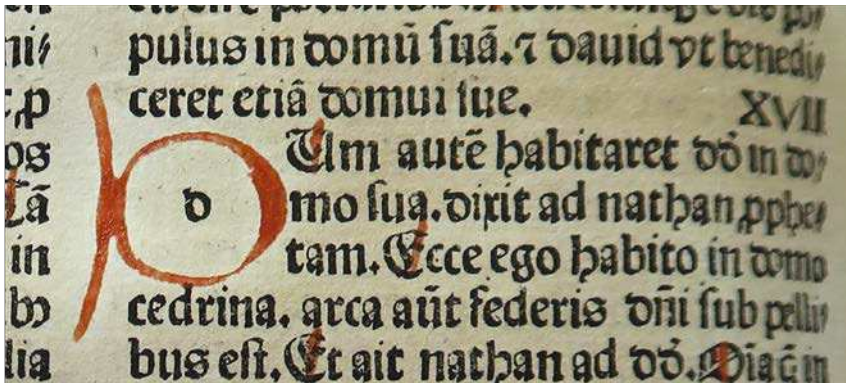 ni⸗
ꝓ
os
ā
in
lia
pulus in domū suā.⁊ dauid vt benedi⸗
ceret etiā domui sue. XVII
d Um autē habitaret dd̄ in do⸗
mo sua.dixit ad nathan ꝓphe⸗
tam.Ecce ego habito in domo
cedrina. arca aūt federis dn̄i sub pelli⸗
bus est.Et ait nathan ad dd̄.Oīa q̄ in